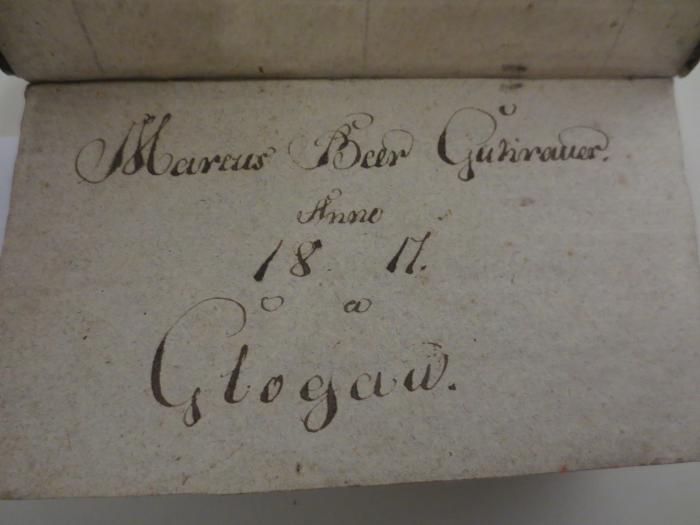 Marcus Beer Guhrauer.
Anno
18 17.
a
Glogau.